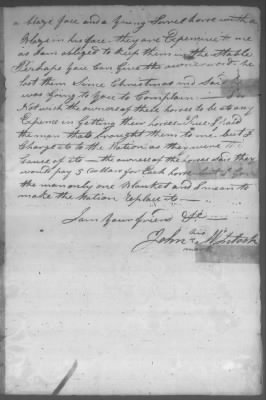 a blaze face and a Young Sorrel horse with a
Blaze in his face. they are Expensive to me
as I am obliged to keep them in the stable
Perhaps you Can find the owners and he
lost them Since Christmas and Said he
was going to you to Complain — I do
Not wish the owners of these horses to be at any
Expence in Getting their horses True I paid
the man that brought them to me but I
Charge it to the Nation as they were the
Cause of it — the owners of the horses Said they
would pay 5 dollars for Each horse but I Gave
the man only one Blanket and I mean to
make the Nation replace it —
I am Your friend &c
John his McIntosh